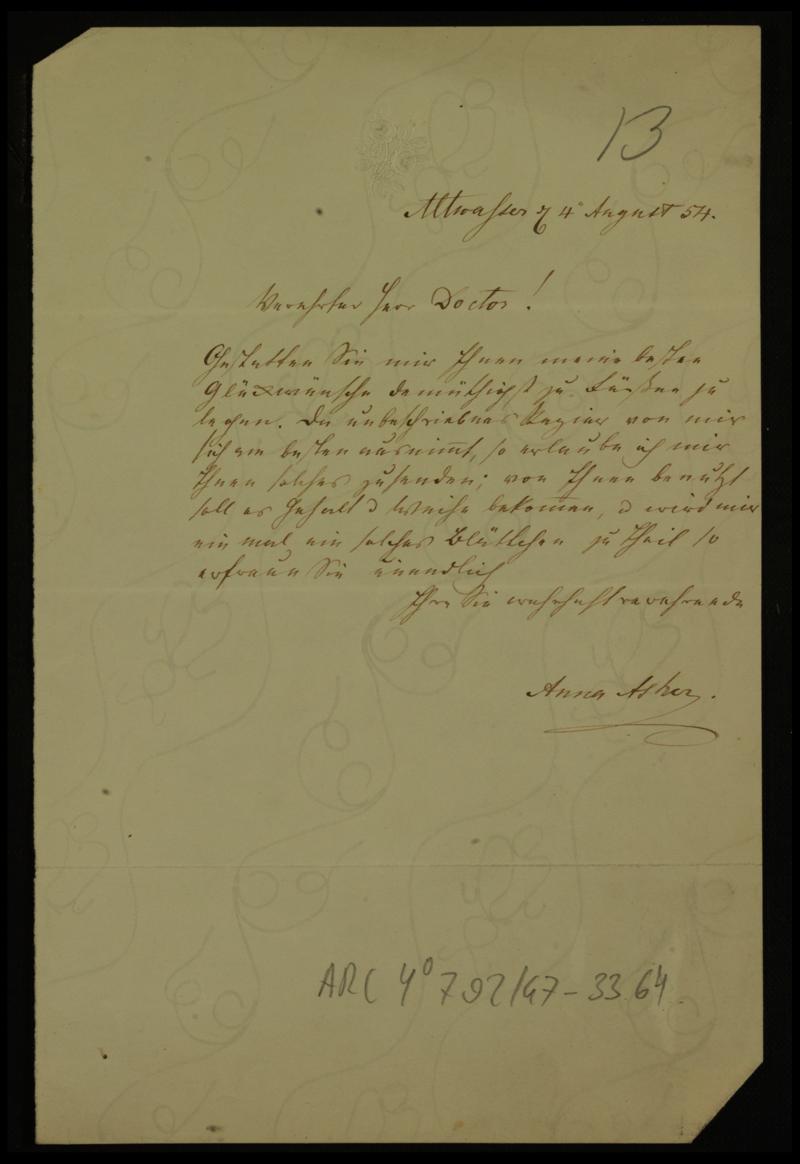 13
Altwasser d 4t August 54.
Verehrter Herr Doctor!
Gestatten Sie mir Ihnen meine besten
Glückwünsche demüthigst zu Füßen zu
legen. Da unbeschriebnes Papier von mir
sich am besten ausnimt, so erlaube ich mir
Ihnen solches zu senden; von Ihnen benutzt
soll es Gehalt & Weihe bekomen, & wird mir
ein mal ein solches Blättchen zu Theil so
erfreuen Sie unendlich
Ihre Sie wahrhaft verehrende
Anna Asher.
ARC 4° 792/G7-33 64